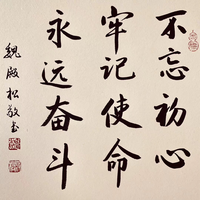 不忘初心
牢记使命
永远奋斗
魏殿松敬书